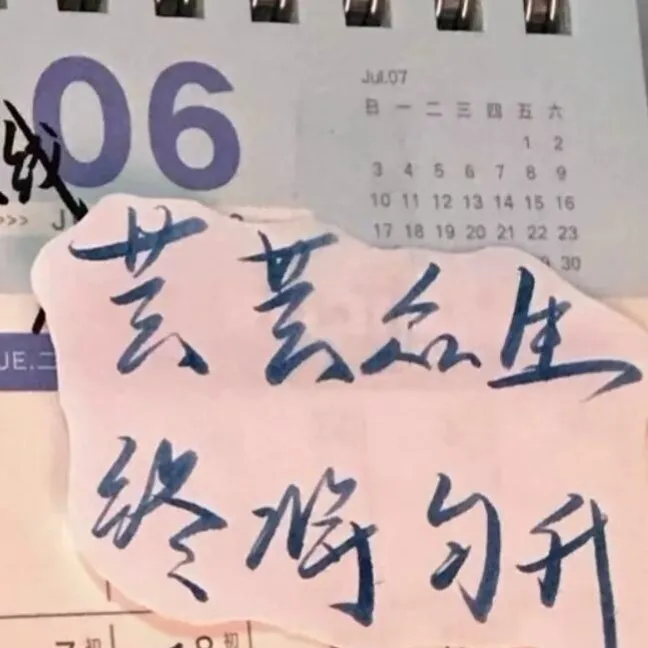 06
Jul.07
日 一 二 三 四 五 六
1 2
3 4 5 6 7 8 9
10 11 12 13 14 15 16
17 18 19 20 21 22 23
30
线
>>> J
UE.二
芸芸众生
终将匀升
7初 8初